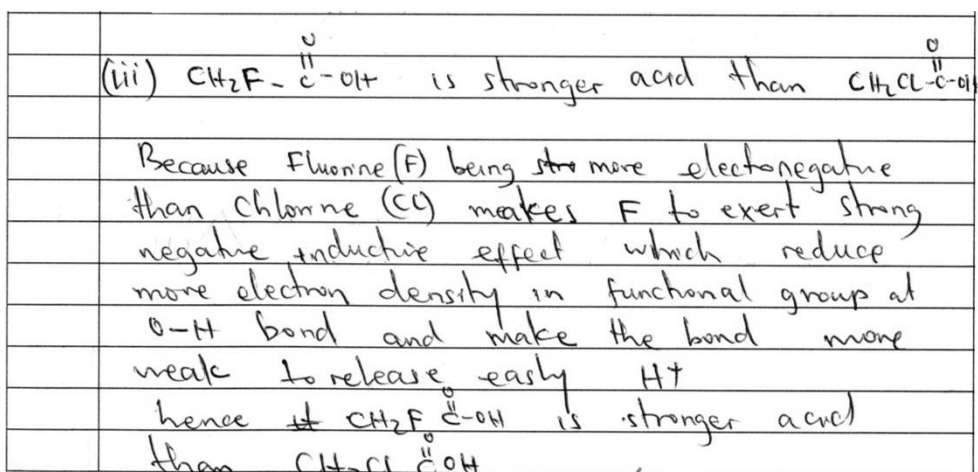 (iii) CH₂F-C(=O)-OH is stronger acid than CH₂Cl-C(=O)-OH
Because Fluorine (F) being more electonegative
than Chlorine (Cl) makes F to exert strong
negative inductive effect which reduce
more electron density in functional group at
O-H bond and make the bond more
weak to release easly H+
hence CH₂F C(=O)-OH is stronger acid
than CH₂Cl C(=O)OH